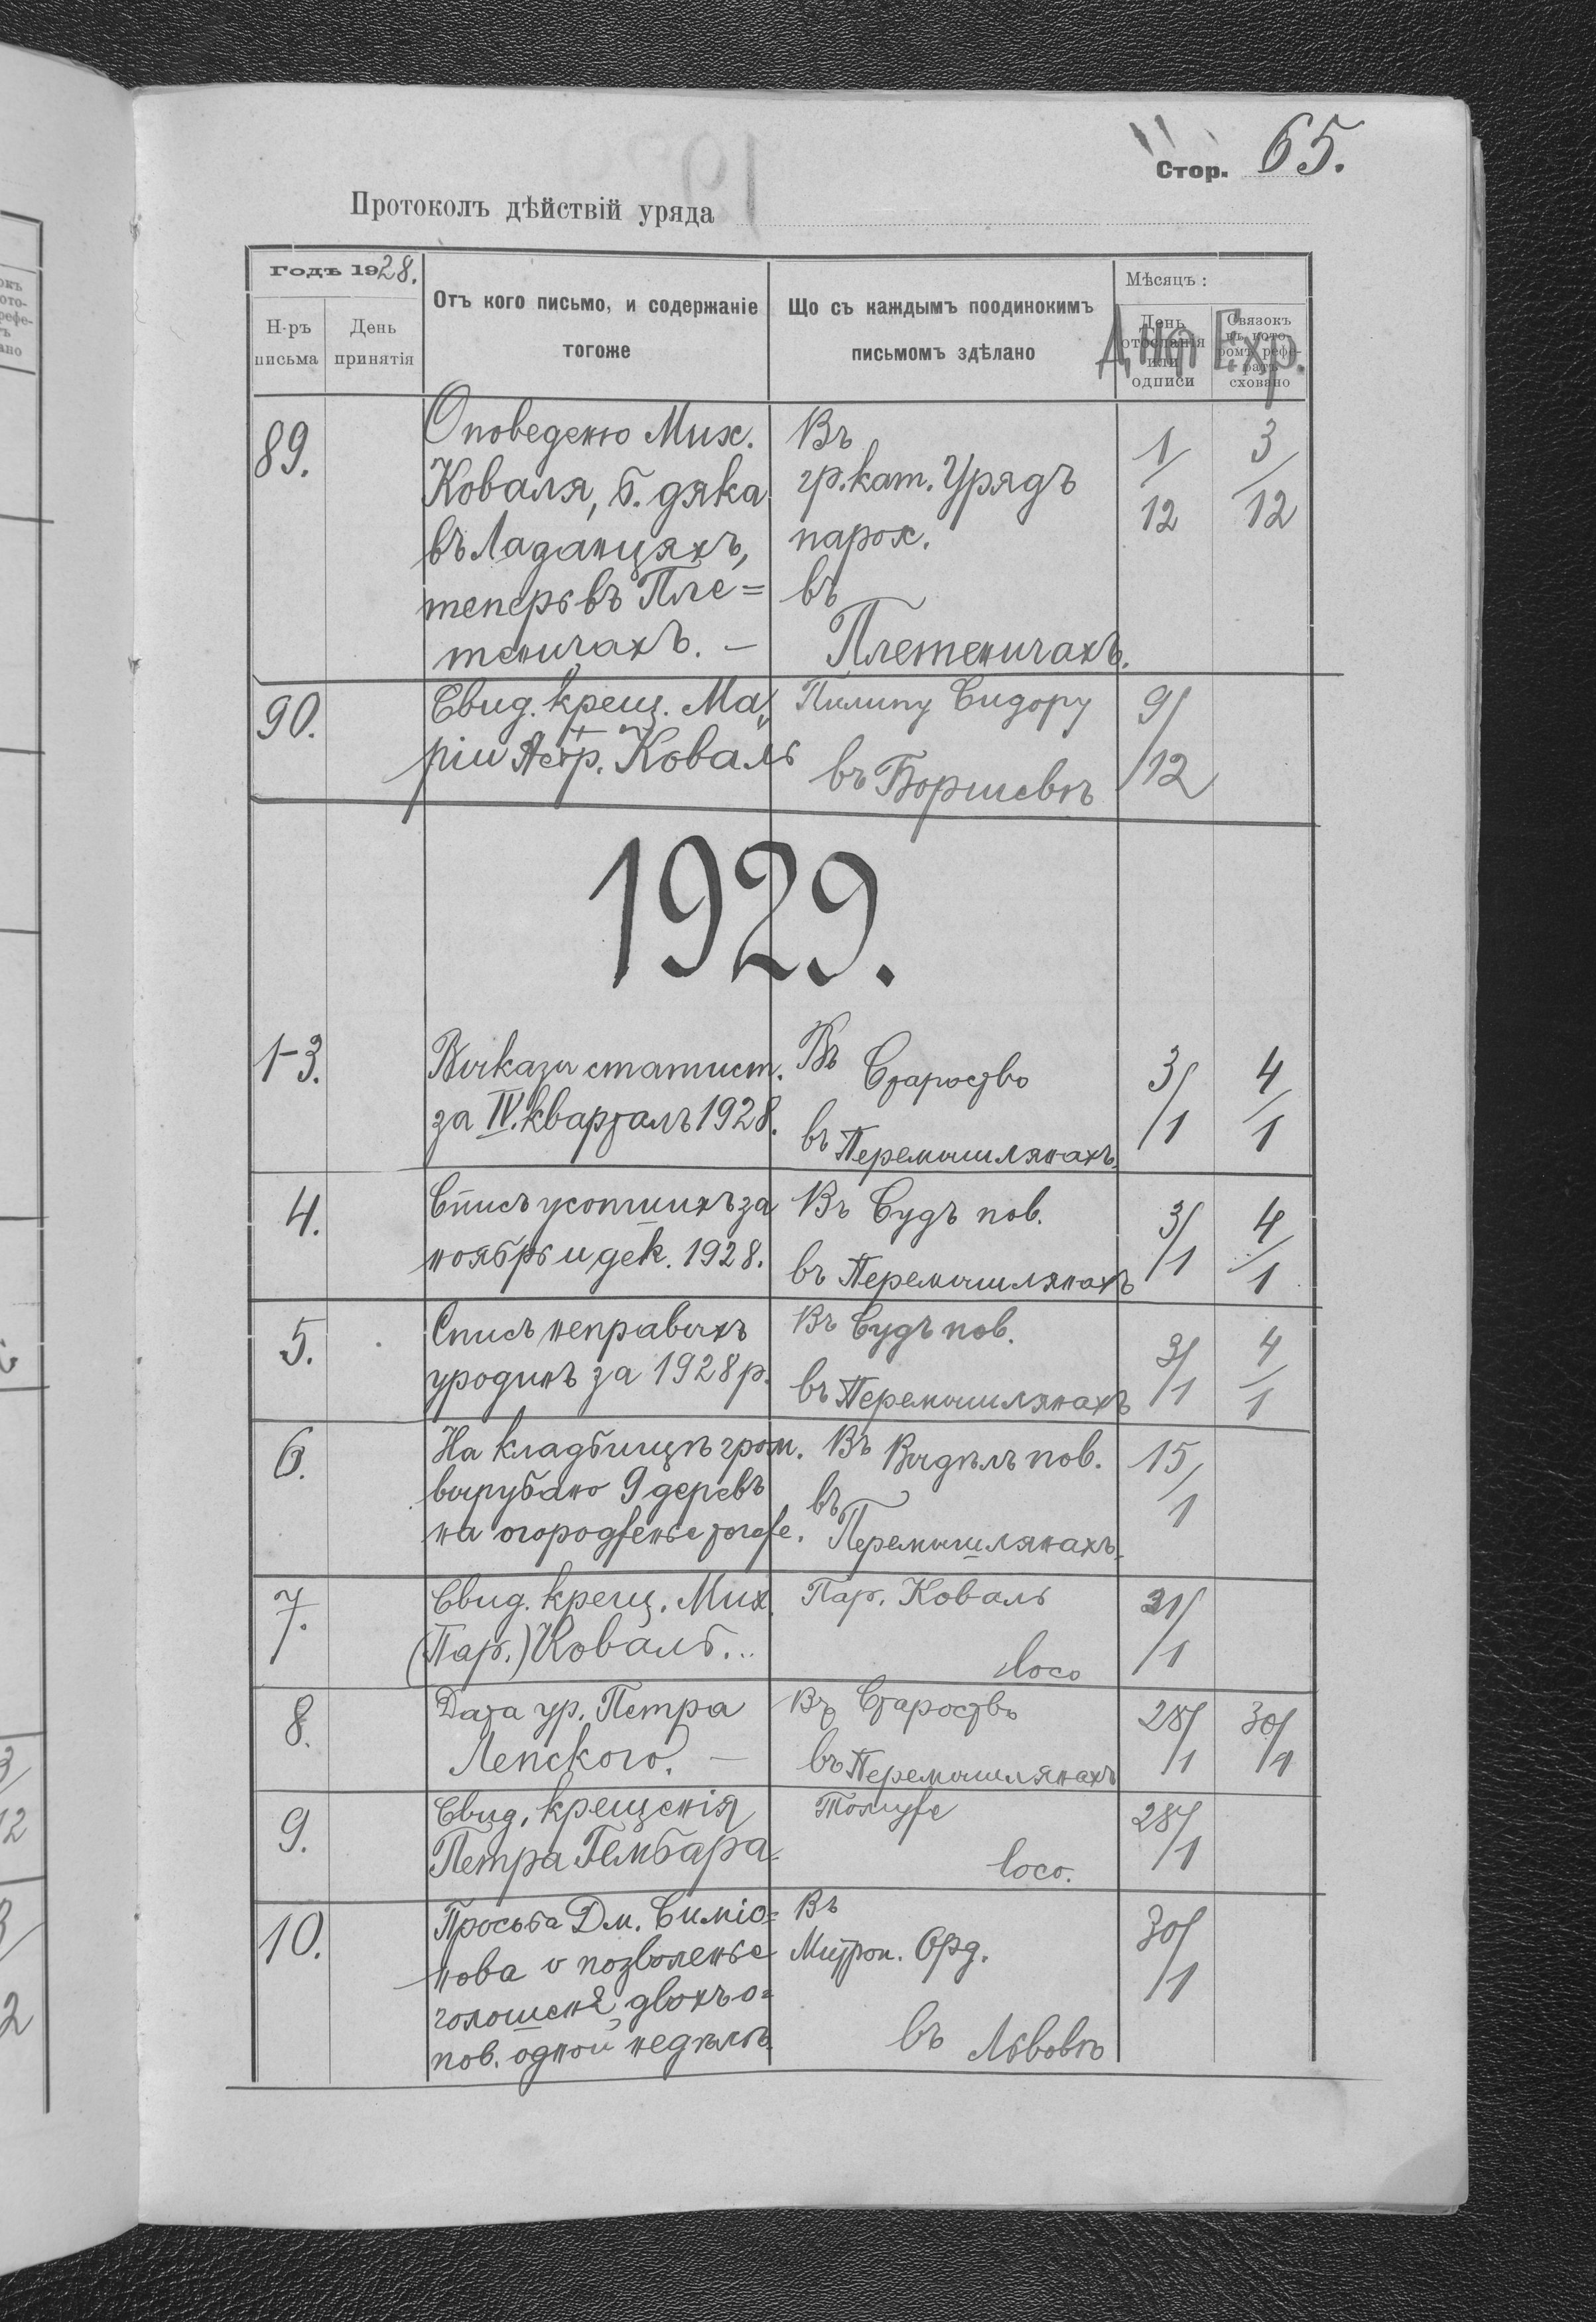 Стор. 65.
Протоколъ дѣйствій уряда
Годъ 1928.
Н-ръ письма
День принятія
Отъ кого письмо, и содержаніе
тогоже
Що съ каждымъ поодинокимъ
письмомъ здѣлано
Мѣсяцъ:
День
отосланія
или
одписи
Связокъ
въ кото-
ромъ рефе-
ратъ
сховано
Дня Exp.
89.
Оповеденю Мих.
Коваля, б. дяка
въ Ладанцяхъ,
теперь въ Пле=
теничахъ. —
Въ
гр. кат. Урядъ
парох.
въ
Плетеничахъ.
1/12
3/12
90.
Свид. крещ. Ма„
ріи Петр. Коваль
Пилипу Сидору
въ Боршевѣ
9/12
1929.
1-3.
Выказы статист.
за IV. кварталъ 1928.
Въ Староство
въ Перемышлянахъ
3/1
4/1
4.
Списъ усопшихъ за
ноябрь и дек. 1928.
Въ Судъ пов.
въ Перемышлянахъ
3/1
4/1
5.
Списъ неправыхъ
уродинъ за 1928 р.
Въ Судъ пов.
въ Перемышлянахъ
3/1
4/1
6.
На кладбищѣ гром.
вырубано 9 деревъ
на огородженье тогоже.
Въ Выдѣлъ пов.
въ
Перемышлянахъ.
15/1
7.
Свид. крещ. Мих.
(Пар.) Коваль...
Пар. Коваль
loco
21/1
8.
Дата ур. Петра
Лепского. —
Въ Староство
въ Перемышлянахъ
28/1
30/1
9.
Свид. крещенія
Петра Гембара
Томуже
loco.
28/1
10.
Просьба Дм. Симіо=
нова о позволенье
голошеня двохъ о=
пов. одной недѣлѣ
Въ
Митроп. Орд.
въ Львовѣ
30/1